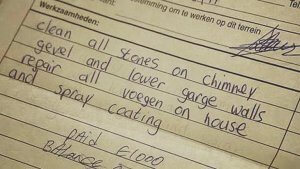 stemming om te werken op dit terrein
Werkzaamheden:
clean all stones on chimney
gevel and lower garge walls
repair all voegen on house
and spray coating
paid £1000
BALANCE